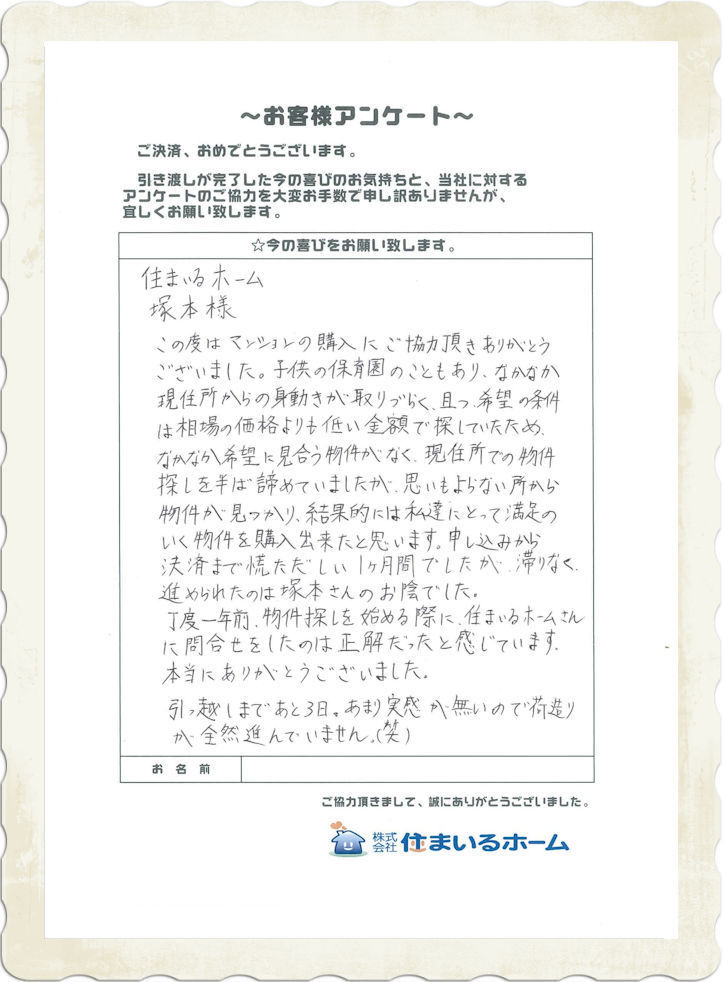 ～お客様アンケート～
ご決済、おめでとうございます。
引き渡しが完了した今の喜びのお気持ちと、当社に対する
アンケートのご協力を大変お手数で申し訳ありませんが、
宜しくお願い致します。
☆今の喜びをお願い致します。
住まいるホーム
塚本様
この度はマンションの購入にご協力頂きありがとう
ございました。子供の保育園のこともあり、なかなか
現住所からの身動きが取りづらく、且つ、希望の条件
は相場の価格よりも低い金額で探していたため、
なかなか希望に見合う物件がなく、現住所での物件
探しを半ば諦めていましたが、思いもよらない所から
物件が見つかり、結果的には私達にとって満足の
いく物件を購入出来たと思います。申し込みから
決済まで慌ただしい1ヶ月間でしたが、滞りなく、
進められたのは塚本さんのお陰でした。
丁度一年前、物件探しを始める際に、住まいるホームさん
に問合せをしたのは正解だったと感じています。
本当にありがとうございました。
引っ越しまであと3日。あまり実感が無いので荷造り
が全然進んでいません。(笑)
お名前
ご協力頂きまして、誠にありがとうございました。
株式会社 住まいるホーム